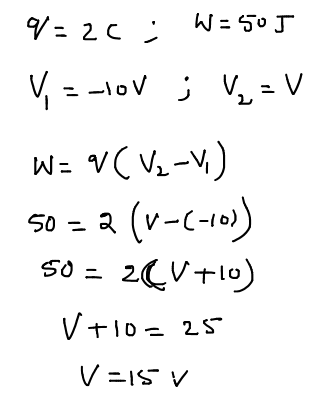 q = 2 C ; W = 50 J
V₁ = -10V ; V₂ = V
W = q (V₂ - V₁)
50 = 2 (V - (-10))
50 = 2 (V + 10)
V + 10 = 25
V = 15 V